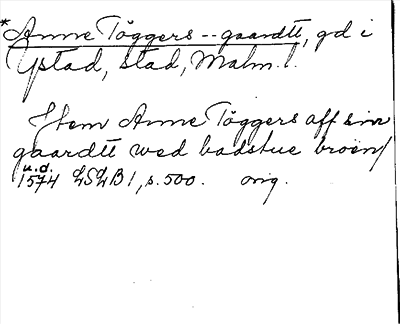 *Anne Töggers -- gaardtt, gd i
Ystad, stad, Malm. l.
Item Anne Töggers aff sin
gaardtt wed badstue broen/
u.d.
1574 LSLB 1, s. 500. orig.